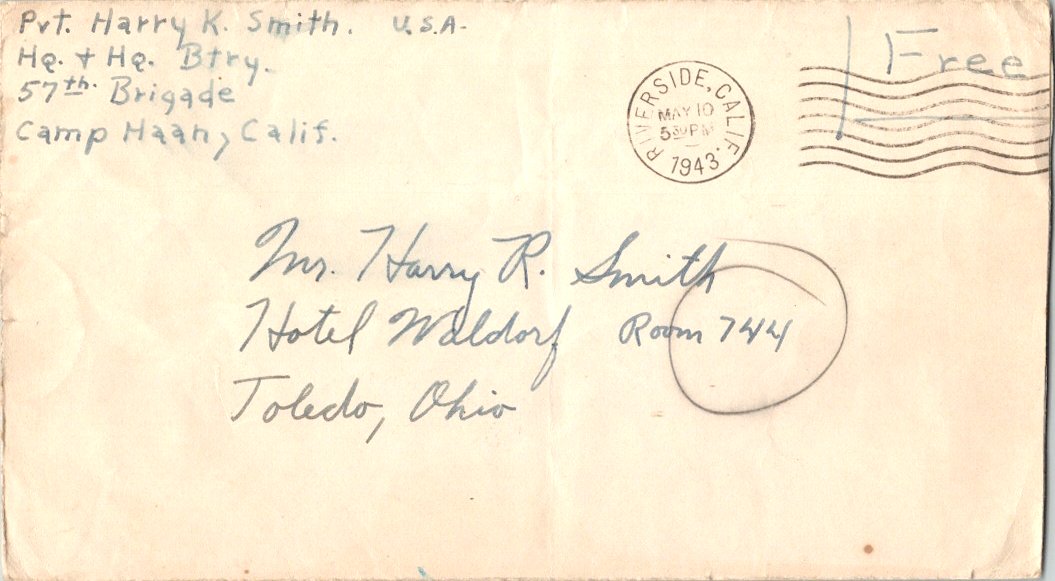 Pvt. Harry K. Smith. U.S.A.
Hq. + Hq. Btry.
57th. Brigade
Camp Haan, Calif.
Free
RIVERSIDE, CALIF.
MAY 10
5 30 PM
1943
Mr. Harry R. Smith
Hotel Waldorf Room 744
Toledo, Ohio